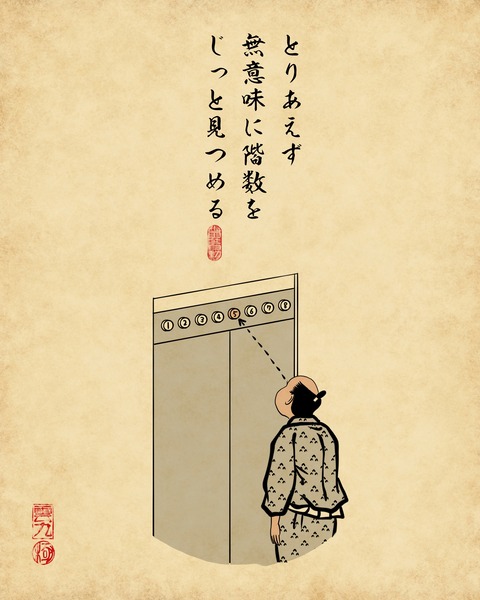 とりあえず
無意味に階数を
じっと見つめる
1 2 3 4 5 6 7 8